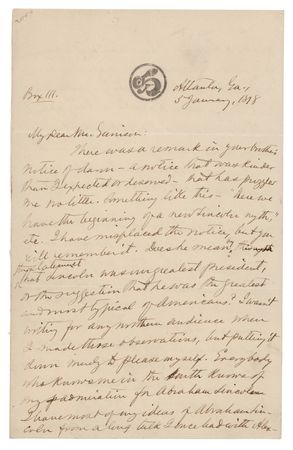 Box 111.
Atlanta, Ga.,
5 January, 1898
My Dear Mr. Garrison:
There was a remark in your brother's
notice of — a notice that was kinder
than I expected or deserved — that has puzzled
me no little. Something like this — "Here we
have the beginning of a new Lincoln myth,"
etc. I have misplaced the notice, but you
will remember it. Does he mean
that Lincoln was our greatest president,
or the suggestion that he was the greatest
and most typical of Americans? I wasn't
writing for any northern audience when
I made those observations, but putting it
down merely to please myself. Everybody
who knows me in the South knows of
my admiration for Abraham Lincoln
I have most of my ideas of Abraham Lin-
coln from a long talk I once had with Alex-